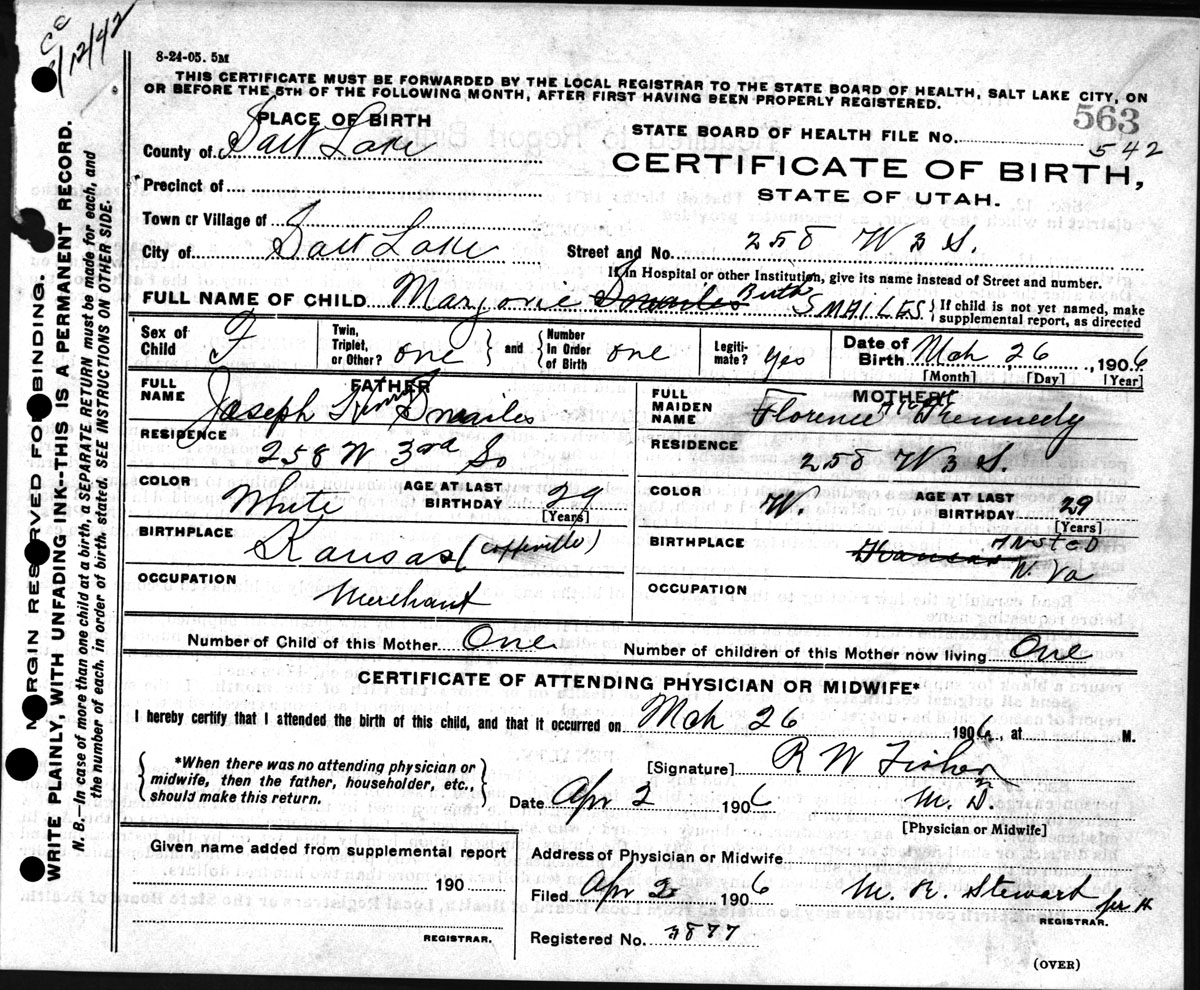 8-24-05. 5M
THIS CERTIFICATE MUST BE FORWARDED BY THE LOCAL REGISTRAR TO THE STATE BOARD OF HEALTH, SALT LAKE CITY, ON
OR BEFORE THE 5TH OF THE FOLLOWING MONTH, AFTER FIRST HAVING BEEN PROPERLY REGISTERED.
563
PLACE OF BIRTH
STATE BOARD OF HEALTH FILE No. 542
County of Salt Lake
CERTIFICATE OF BIRTH,
STATE OF UTAH.
Precinct of
Town or Village of
City of Salt Lake
Street and No. 258 W 3 S.
If in Hospital or other Institution, give its name instead of Street and number.
FULL NAME OF CHILD Marjorie Smailes Beth SMAILES
{ If child is not yet named, make
supplemental report, as directed
Sex of Child F
Twin, Triplet, or Other? one } and { Number In Order of Birth one
Legitimate? yes
Date of Birth Mch 26, 1906
[Month] [Day] [Year]
FATHER
FULL NAME Joseph Smailes
RESIDENCE
258 W 3rd So
COLOR White
AGE AT LAST BIRTHDAY 29
[Years]
BIRTHPLACE Kansas (Coffeville)
OCCUPATION
Merchant
MOTHER
FULL MAIDEN NAME Florence Kennedy
RESIDENCE
258 W 3 S.
COLOR W
AGE AT LAST BIRTHDAY 29
[Years]
BIRTHPLACE Kansas ANSTED
W. Va
OCCUPATION
Number of Child of this Mother One
Number of children of this Mother now living One
CERTIFICATE OF ATTENDING PHYSICIAN OR MIDWIFE*
I hereby certify that I attended the birth of this child, and that it occurred on Mch 26 1906, at M.
{ *When there was no attending physician or
midwife, then the father, householder, etc.,
should make this return. }
[Signature] R W Fisher
Date Apr 2 1906 M. D.
[Physician or Midwife]
Given name added from supplemental report
190
REGISTRAR.
Address of Physician or Midwife
Filed Apr 2 1906 M. R. Stewart per H
REGISTRAR.
Registered No. 3877
(OVER)
MARGIN RESERVED FOR BINDING.
WRITE PLAINLY, WITH UNFADING INK--THIS IS A PERMANENT RECORD.
N. B.—In case of more than one child at a birth, a SEPARATE RETURN must be made for each, and
the number of each, in order of birth, stated. SEE INSTRUCTIONS ON OTHER SIDE.